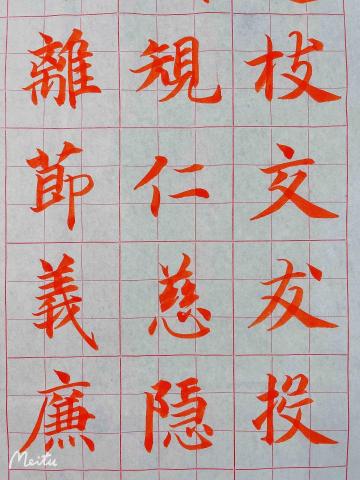 枝交友投
規仁慈隱
離節義廉
Meitu